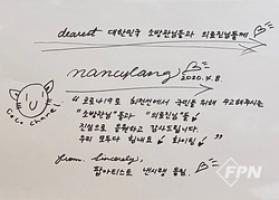 dearest 대한민국 소방관님들과 의료진님들께
nancylang
2020.4.8.
CoCo Chanel
"코로나19로 최전선에서 국민을 위해 수고해주시는
"소방관님"들과 "의료진님"들
진심으로 응원하고 감사드립니다.
우리 모두다 힘내요 화이팅"
from. Sincerely,
팝아티스트 낸시랭 드림.
FPN